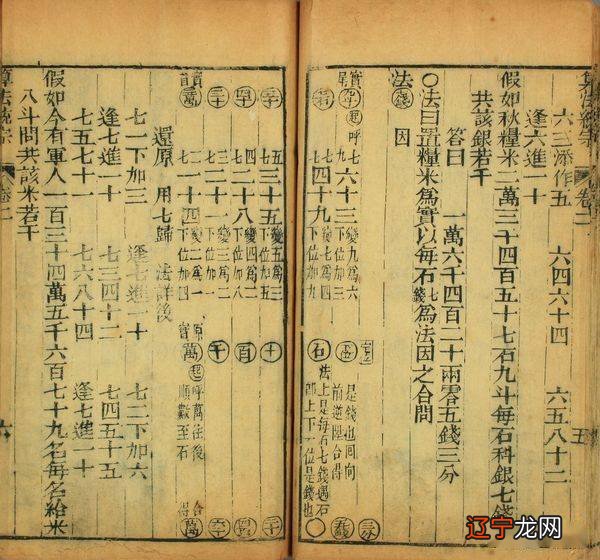 算法統宗 卷二 五
六三添作五 六四六十四 六五八十二
逢六進一十
假如秋糧米二萬三千四百五十七石九斗每石科銀七錢
共該銀若干
答曰 一萬六千四百二十兩零五錢三分
〇法曰置糧米為實以每石七錢為法因之合問
法 七錢 因
七九六十三 變九為六 下位加三 是錢也回向前逆陞合得
七七四十九 變七為四 下位加九 石 法上是每石七錢遇石即上下一位是錢也
五七三十五 變五為三 下位加五
四七二十八 變四為二 下位加八 百
三七二十一 變三為二 下位加一 千
實萬 二七一十四 變二為一 下位加四 原實萬 起呼萬往後順數至石 合得萬
還原 用七歸 法詳後
七一下加三 逢七進一十 七二下加六
逢七進一十 七三四十二 七四五十五
七五七十一 七六八十四 逢七進一十
假如今有軍人一百三十四萬五千六百七十九名每名給米
八斗問共該米若干
算法統宗 卷二 六
辽宁龙网